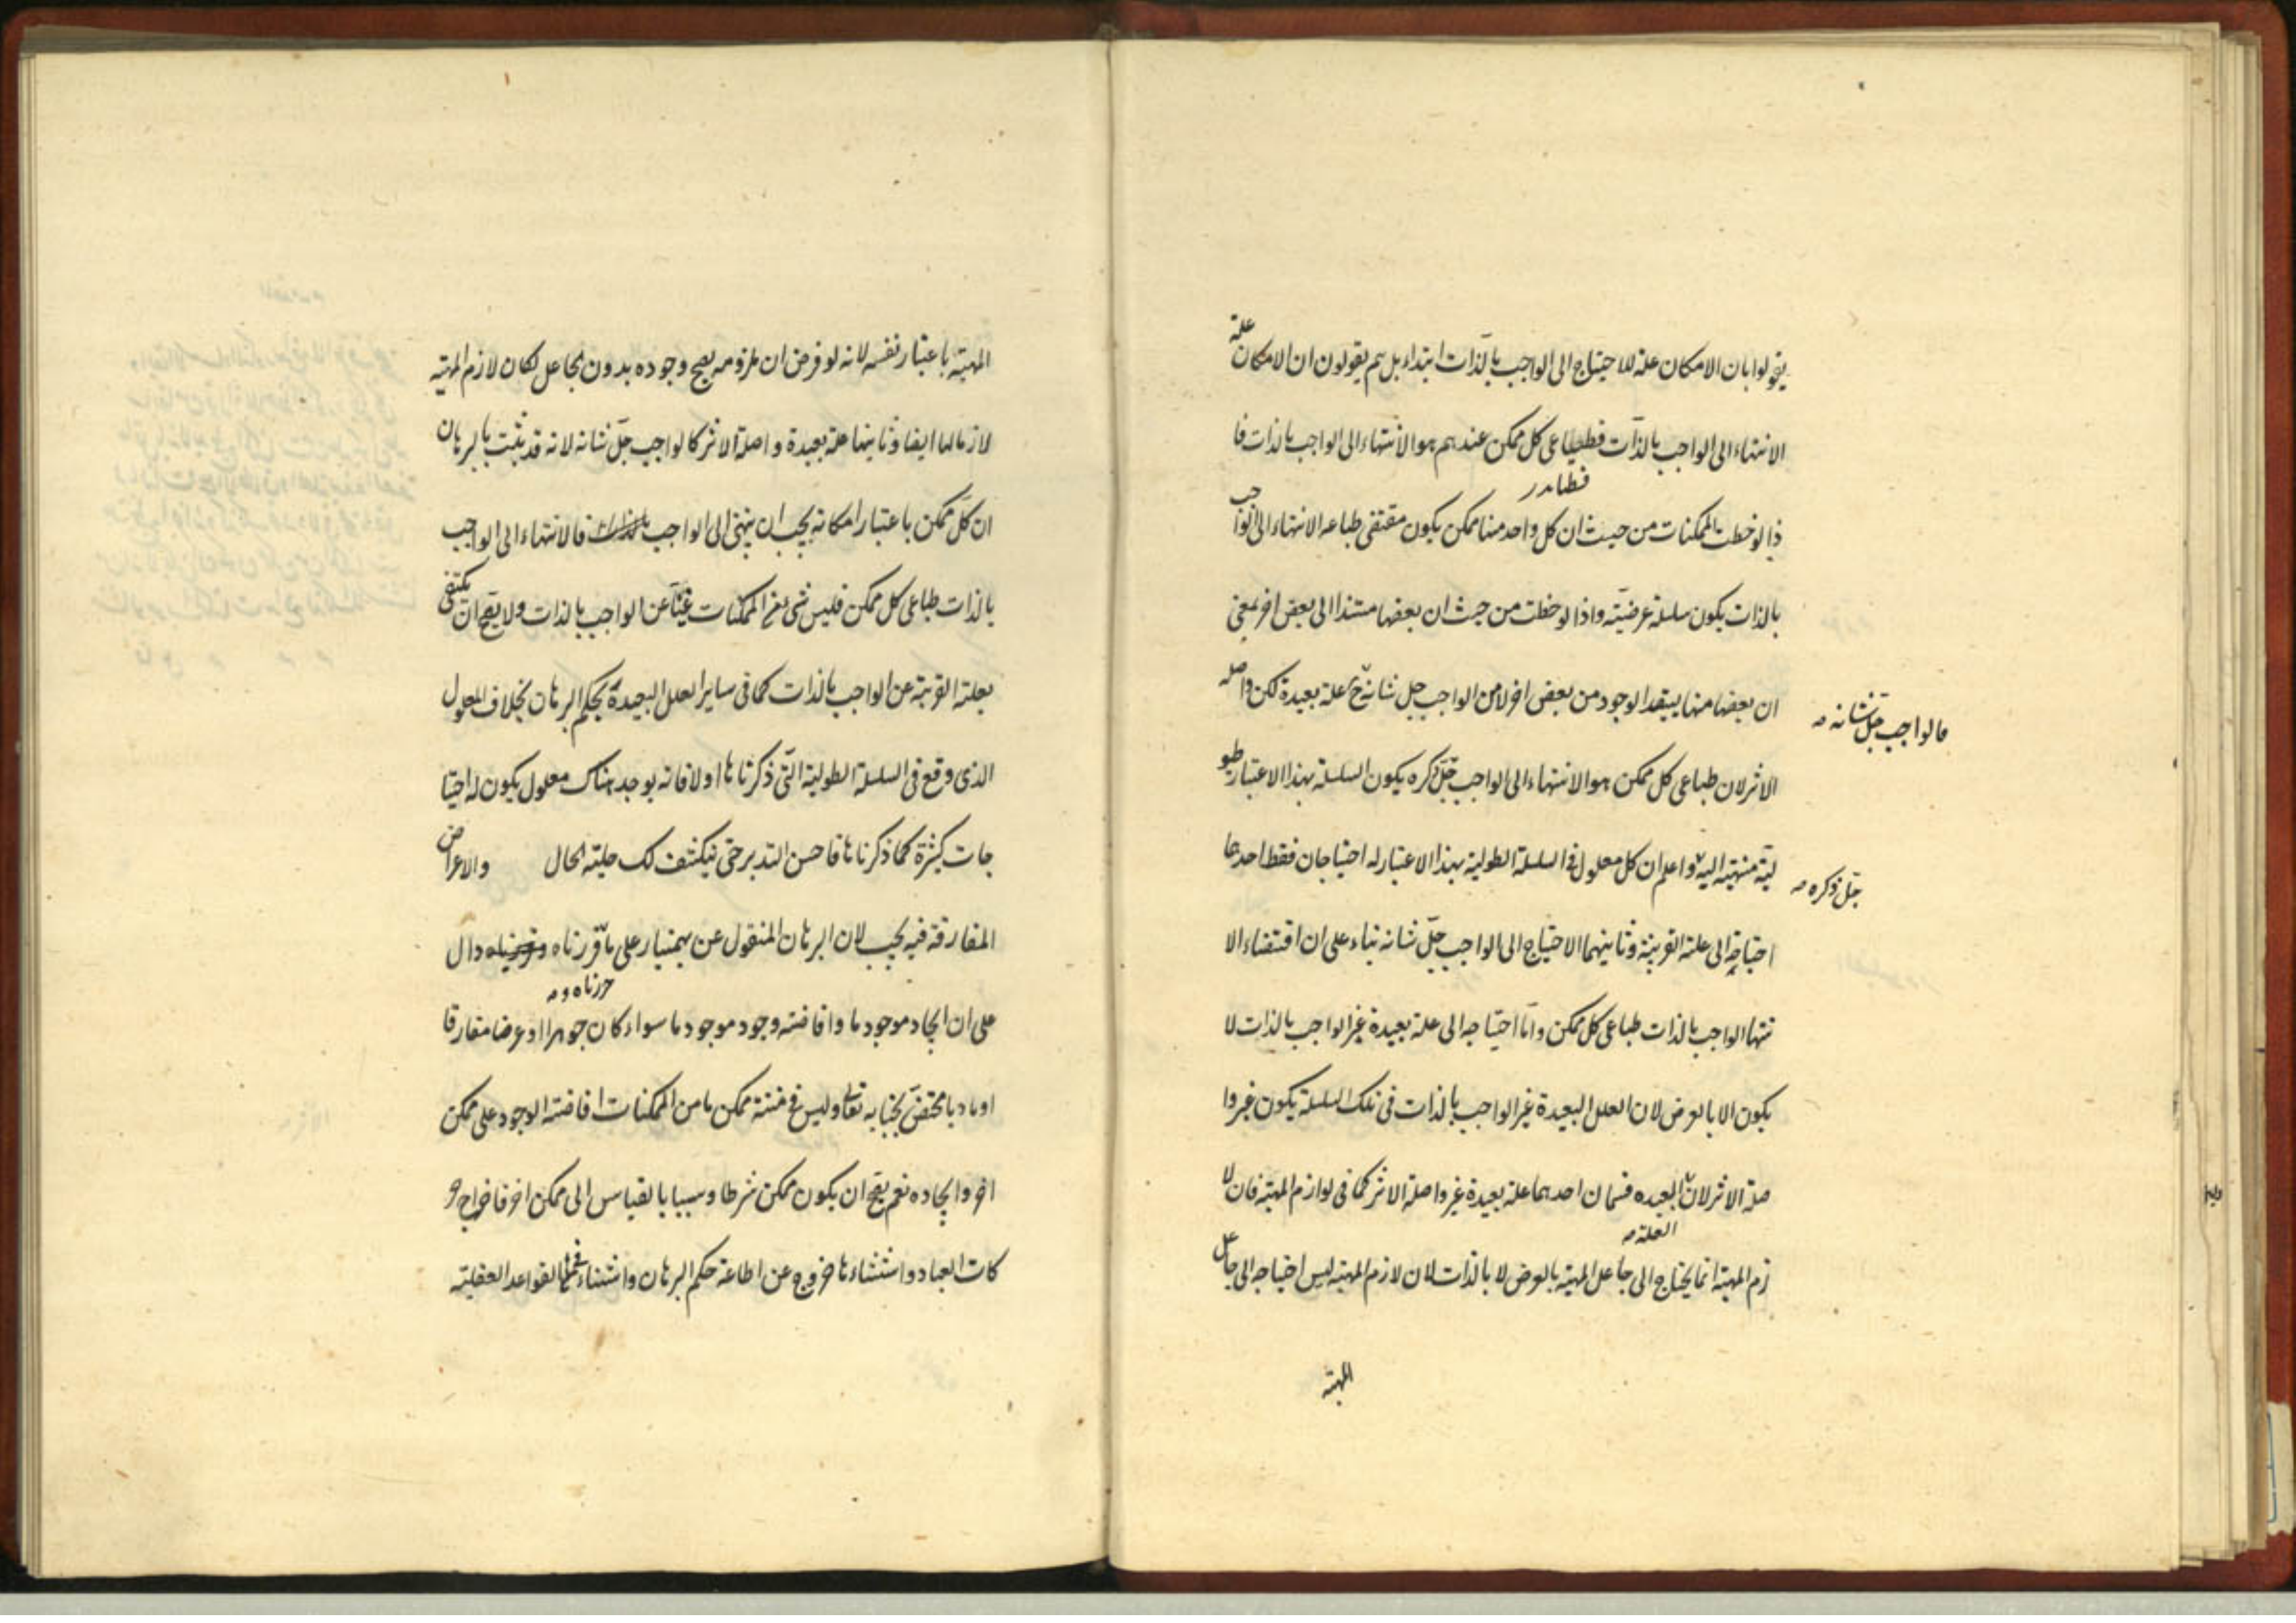 يقولوا بان الامكان علة للاحتياج الى الواجب بالذات ابتداء بل هم يقولون ان الامكان علة
الانتهاء الى الواجب بالذات فطباع كل ممكن عندهم هو الانتهاء الى الواجب بالذات فا
ذا لوخظت الممكنات من حيث ان كل واحد منها ممكن يكون مقتضى طباعه الانتهاء الى الواجب
بالذات يكون سلسلة عرضيّة واذا لوخظت من حيث ان بعضها مستندا الى بعض اخر بمعنى
ان بعضها منها يستفيد الوجود من بعض اخر لا من الواجب جل شانه ح علة بعيدة لكن واصلة
فالواجب جلّ شانه
الاثر لان طباع كل ممكن هو الانتهاء الى الواجب جلّ ذكره يكون السلسلة بهذا الاعتبار طو
لية منتهية اليه واعلم ان كل معلول فى السلسلة الطولية بهذا الاعتبار له احتياجان فقط احدهما
جلّ ذكره
احتياجه الى علته القريبة وثانيهما الاحتياج الى الواجب جلّ شانه بناء على ان اقتضاء الا
نتهاء الواجب بالذات طباع كل ممكن وامّا احتياجه الى علة بعيدة غير الواجب بالذات لا
يكون الا بالعرض لان العلل البعيدة غير الواجب بالذات فى تلك السلسلة يكون غير وا
صلة الاثر لان البعيده قسمان احدهما علة بعيدة غير واصلة الاثر كما فى لوازم المهية فان لا
العلة
زم المهية انما يحتاج الى جاعل المهية بالعرض لا بالذات لان لازم المهية ليس احتياجه الى جاعل
المهية
المهية باعتبار نفسه لانه لو فرض ان ملزومه يصح وجوده بدون الجاعل لكان لازم المهية
لازما لها ايضا وثانيهما علة بعيدة واصلة الاثر كالواجب جلّ شانه لانه قد يثبت بالبرهان
ان كل ممكن باعتبار امكانه يجب ان ينتهى الى الواجب بالذات فالانتهاء الى الواجب
بالذات طباع كل ممكن فليس شئ من الممكنات غنيّا عن الواجب بالذات ولا يصح ان يكتفى
بعلته القريبة عن الواجب بالذات كما فى ساير العلل البعيدة بحكم البرهان بخلاف المعلول
الذى وقع فى السلسلة الطولية التى ذكرناها اولا فانه يوجد هناك معلول يكون له احتيا
جات كثيرة كما ذكرناها فاحسن التدبر حتى ينكشف لك حلية الحال والاعراض
المفارقة فيه يجب لان البرهان المنقول عن بهمنيار على ما قررناه دال
حررناه و
على ان ايجاد موجود ما وافاضة وجود موجود ما سواء كان جوهرا او عرضا مفارقا
او ماديا مختصّ بجنابه تعالى وليس فى منة ممكن ما من الممكنات افاضة الوجود على ممكن
اخر وايجاده نعم يصح ان يكون ممكن شرطا وسببا بالقياس الى ممكن اخر فاخراج حر
كات العباد واستثناءها خروج عن اطاعة حكم البرهان واستثناء القواعد العقلية